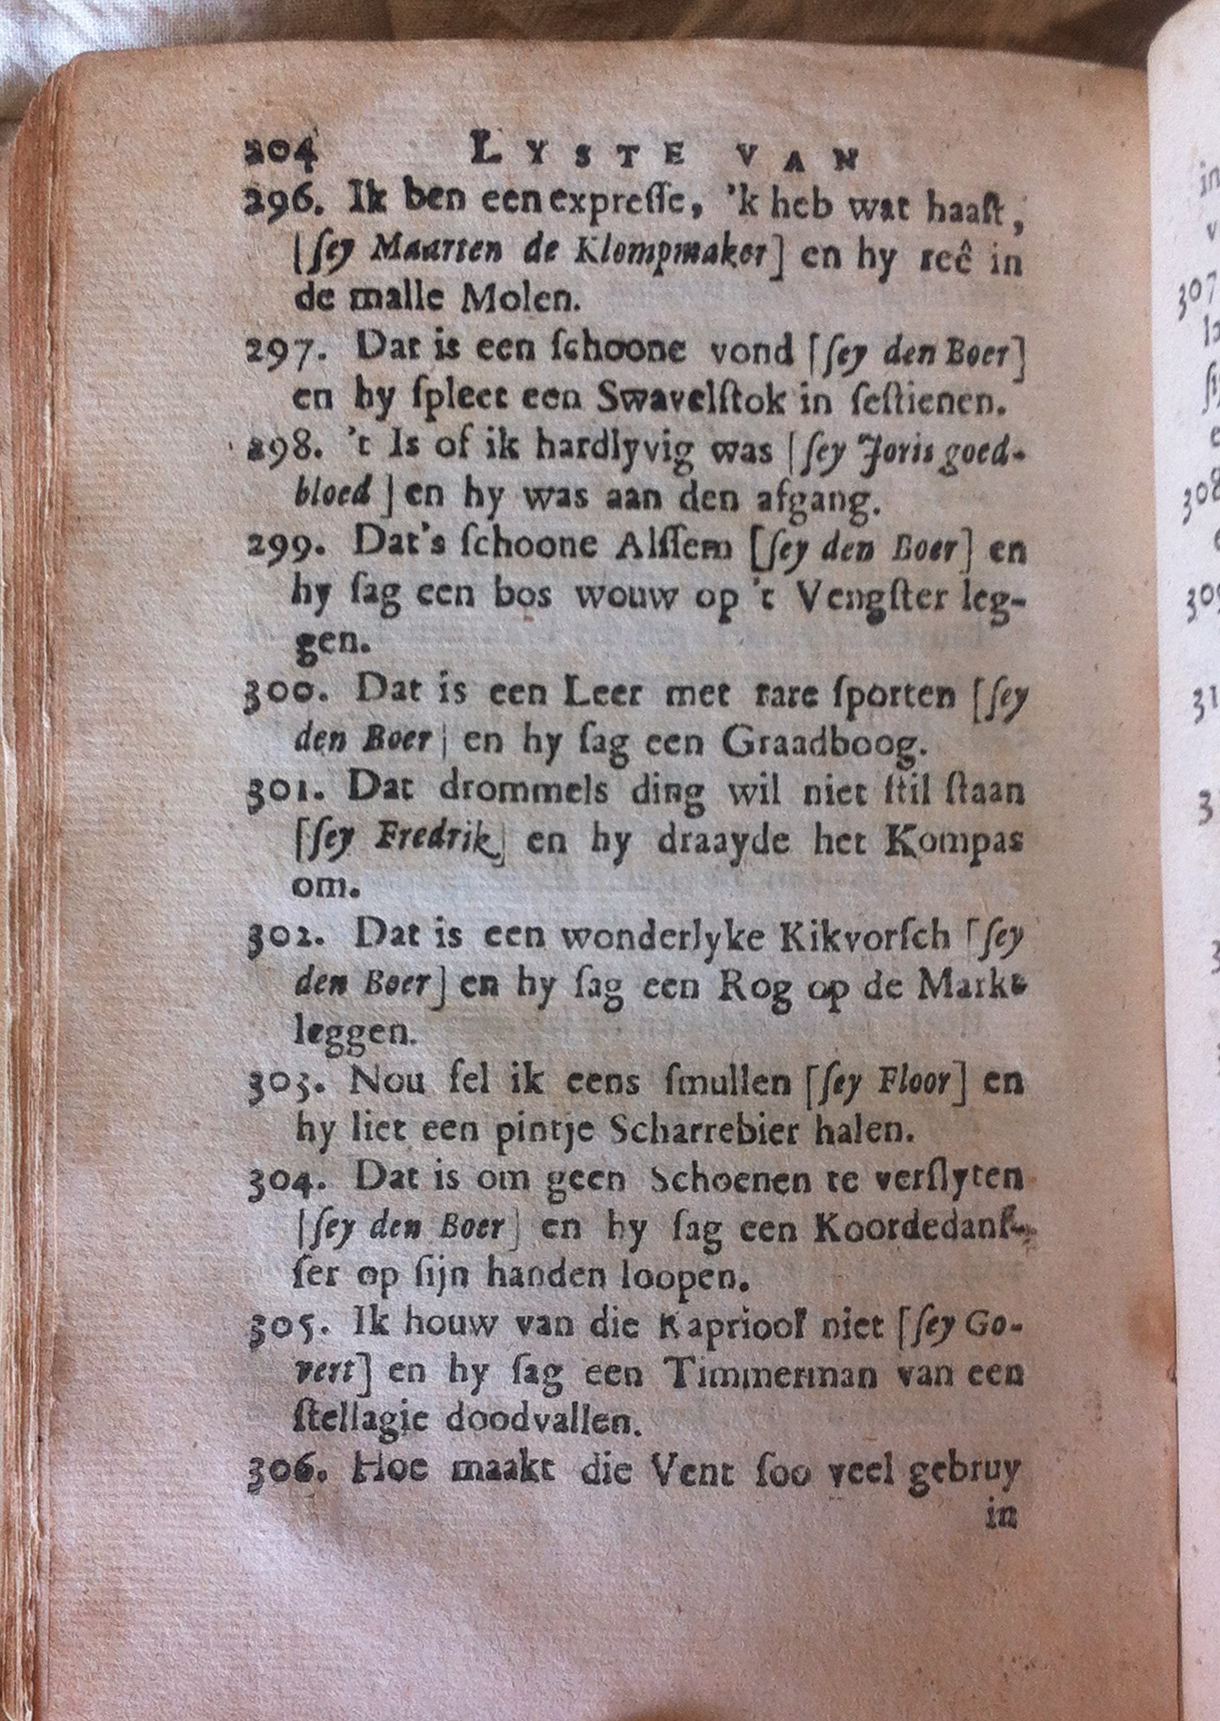 204 LYSTE VAN
296. Ik ben een expreſſe, 'k heb wat haaſt,
[ſey Maarten de Klompmaker] en hy reê in
de malle Molen.
297. Dat is een ſchoone vond [ſey den Boer]
en hy ſpleet een Swavelſtok in ſeſtienen.
298. 't Is of ik hardlyvig was [ſey Joris goed-
bloed] en hy was aan den afgang.
299. Dat's ſchoone Alſſem [ſey den Boer] en
hy ſag een bos wouw op 't Vengſter leg-
gen.
300. Dat is een Leer met rare ſporten [ſey
den Boer] en hy ſag een Graadboog.
301. Dat drommels ding wil niet ſtil ſtaan
[ſey Fredrik] en hy draayde het Kompas
om.
302. Dat is een wonderlyke Kikvorſch [ſey
den Boer] en hy ſag een Rog op de Markt
leggen.
303. Nou ſel ik eens ſmullen [ſey Floor] en
hy liet een pintje Scharrebier halen.
304. Dat is om geen Schoenen te verſlyten
[ſey den Boer] en hy ſag een Koordedanſ-
ſer op ſijn handen loopen.
305. Ik houw van die Kaprioof niet [ſey Go-
vert] en hy ſag een Timmerman van een
ſtellagie doodvallen.
306. Hoe maakt die Vent ſoo veel gebruy
in
in
307
308
309